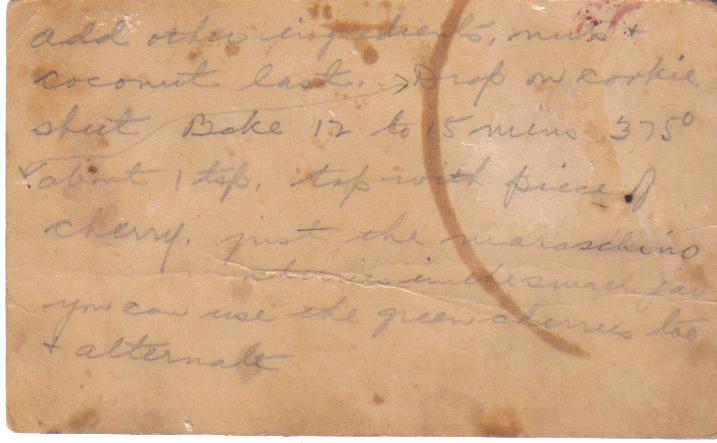 add other ingredients, nuts +
coconut last. → Drop on cookie
sheet Bake 12 to 15 mins 375°
about 1 tsp. top with piece of
cherry. just the maraschino
cherries in the small jar
you can use the green cherries too
+ alternate